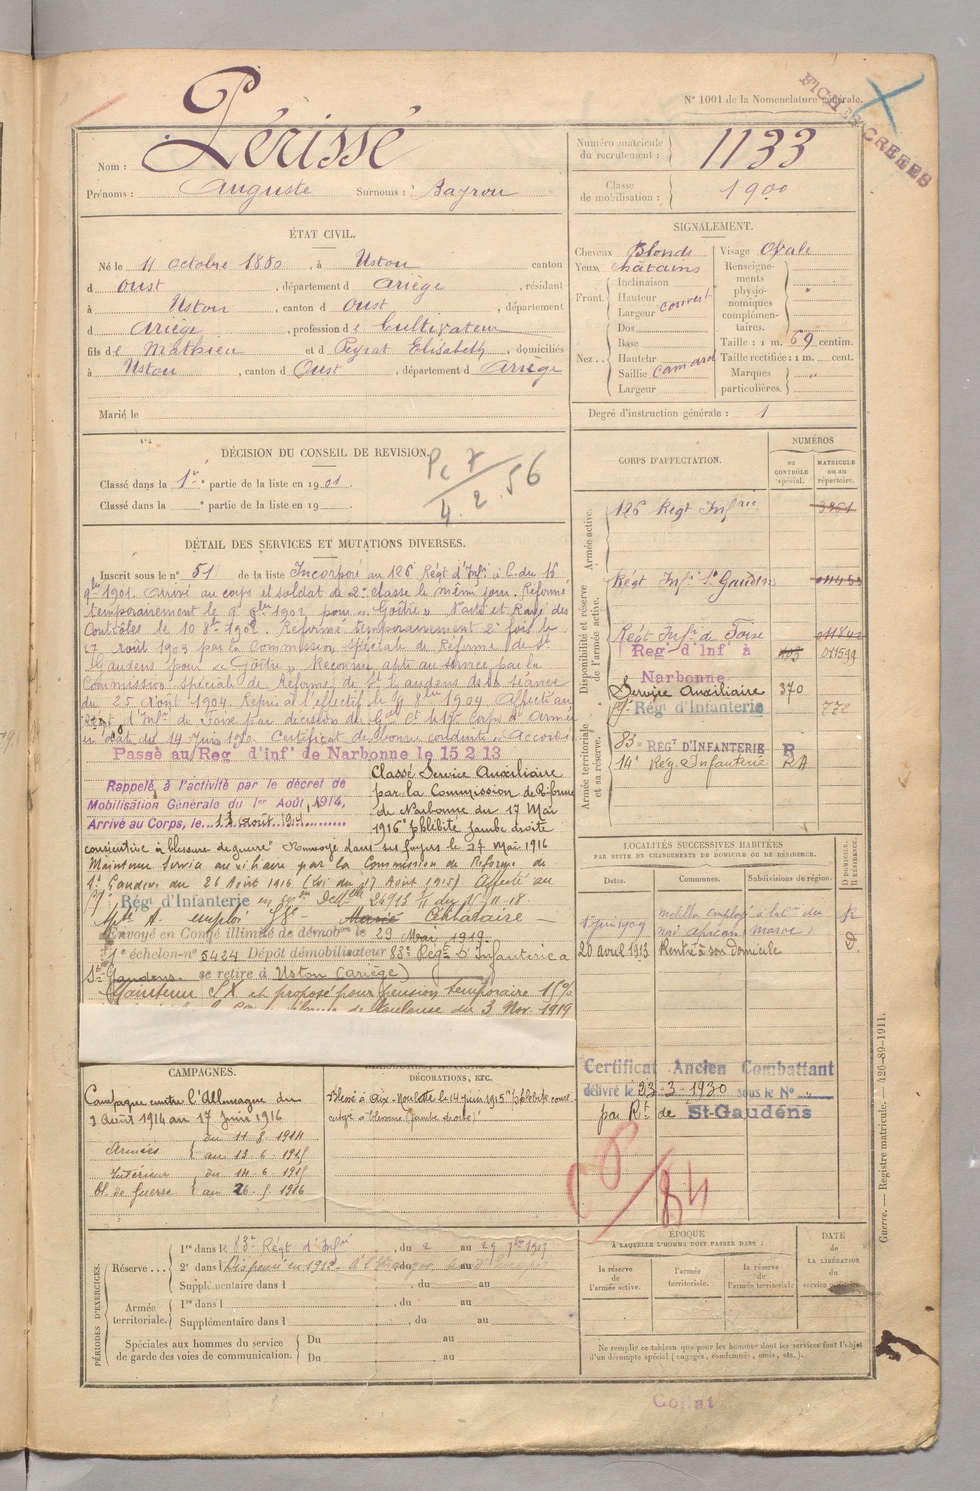 N° 1001 de la Nomenclature générale.
FICHES CREEES
Nom : Périssé
Prénoms : Auguste Surnoms : Bayrou
Numéro matricule du recrutement : 1133
Classe de mobilisation : 1900
ÉTAT CIVIL.
Né le 11 octobre 1880, à Ustou canton
d Oust, département d Ariège, résidant
à Ustou, canton d Oust, département
d Ariège, profession de Cultivateur
fils de Mathieu et d Peyrat Elisabeth, domiciliés
à Ustou, canton d Oust, département d Ariège
Marié le
SIGNALEMENT.
Cheveux Blonds
Yeux châtains
Front. Inclinaison
Hauteur couvert
Largeur
Nez.. Dos
Base
Hauteur
Saillie camard
Largeur
Visage Ovale
Renseignements physionomiques complémentaires. "
Taille : 1 m. 69 centim.
Taille rectifiée : 1 m. cent.
Marques particulières. "
Degré d'instruction générale : 1
DÉCISION DU CONSEIL DE REVISION.
Classé dans la 1re partie de la liste en 1901.
Classé dans la e partie de la liste en 19 .
Pc 7
4.2.56
DÉTAIL DES SERVICES ET MUTATIONS DIVERSES.
Inscrit sous le n° 51 de la liste Incorporé au 126 Régt d'Infie à C. du 16
9bre 1901. Arrivé au corps et soldat de 2e classe le même jour. Réformé
temporairement le 9 8bre 1902 pour "Goître" et Rayé des
Contrôles le 10 8bre 1902. Réformé temporairement 2e fois le
27 Août 1903 par la Commission spéciale de Réforme de St
Gaudens pour "Goître" Reconnu apte au service par la
Commission spéciale de Réforme de St Gaudens de la séance
du 25 Août 1904. Repris à l'effectif le 9 8bre 1904. Affecté au
Régt d'Infie de Foix par décision du Gal Ct le 17e Corps d'Armée
en date du 14 Juin 1910. Certificat de bonne conduite "Accordé"
Passé au Reg d'inf de Narbonne le 15 2 13
Rappelé à l'activité par le décret de
Mobilisation Générale du 1er Août 1914,
Arrivé au Corps, le 11 août 1914
Classé Service Auxiliaire
par la Commission de Réforme
de Narbonne du 17 Mai
1916 "phlébite jambe droite
consécutive à blessure de guerre" Renvoyé dans ses foyers le 27 Mai 1916
Maintenu Service auxiliaire par la Commission de Réforme de
St Gaudens du 26 Août 1916 (Loi du 17 Août 1915) Affecté au
Régt d'Infanterie 24913 11 du 11-18.
emploi Marié Célibataire
Envoyé en Congé illimité de démobon le 29 Mai 1919.
1e échelon-n° 5424 Dépôt démobilisateur 83e Régt D'Infanterie à
St Gaudens se retire à Ustou (Ariège)
Maintenu SX et proposé pour pension temporaire 10%
de Toulouse du 3 Nov. 1919
CORPS D'AFFECTATION.
NUMÉROS
au CONTRÔLE spécial.
MATRICULE ou au répertoire.
Armée active.
126 Régt Infrie 3261
Disponibilité et réserve de l'armée active.
Régt Infie St Gaudens
Régt Infie de Foix
Reg d'Inf à Narbonne 011599
Service Auxiliaire 370
Régt d'Infanterie 772
Armée territoriale et sa réserve.
83e RÉGT D'INFANTERIE R
14e Reg. d'Infanterie RA
LOCALITÉS SUCCESSIVES HABITÉES
PAR SUITE DE CHANGEMENTS DE DOMICILE OU DE RÉSIDENCE.
Dates.
Communes.
Subdivisions de région.
D DOMICILE. R RÉSIDENCE.
1er juin 1909 Melilla employé à la Cie du nord africain (Maroc) R
20 avril 1913 Rentré à son domicile D
Certificat Ancien Combattant
délivré le 23-3-1930 sous le N° "
par Rt de St-Gaudens
CAMPAGNES.
Campagne contre l'Allemagne du
2 Août 1914 au 17 Juin 1916
Armées du 11-8-1914
au 13-6-1915
Intérieur du 14-6-1915
Bl. de Guerre au 26-5-1916
DÉCORATIONS, ETC.
Blessé à Aix-Noulette le 14 juin 1915 "phlébite jambe droite"
84
PÉRIODES D'EXERCICES.
Réserve... 1re dans le 83e Régt d'Infie, du 2 au 29 7bre 1907
2e dans l Dispensé en 1912
Supplémentaire dans l , du au
Armée territoriale. 1re dans l , du au
Supplémentaire dans l , du au
Spéciales aux hommes du service de garde des voies de communication. Du au
Du au
ÉPOQUE
A LAQUELLE L'HOMME DOIT PASSER DANS :
la réserve de l'armée active.
l'armée territoriale.
la réserve de l'armée territoriale.
DATE DE LA LIBÉRATION du service militaire.
Ne remplir ce tableau que pour les hommes dont les services font l'objet
d'un décompte spécial (engagés, condamnés, omis, etc.).
Guerre. — Registre matricule. — 426-89-1911.